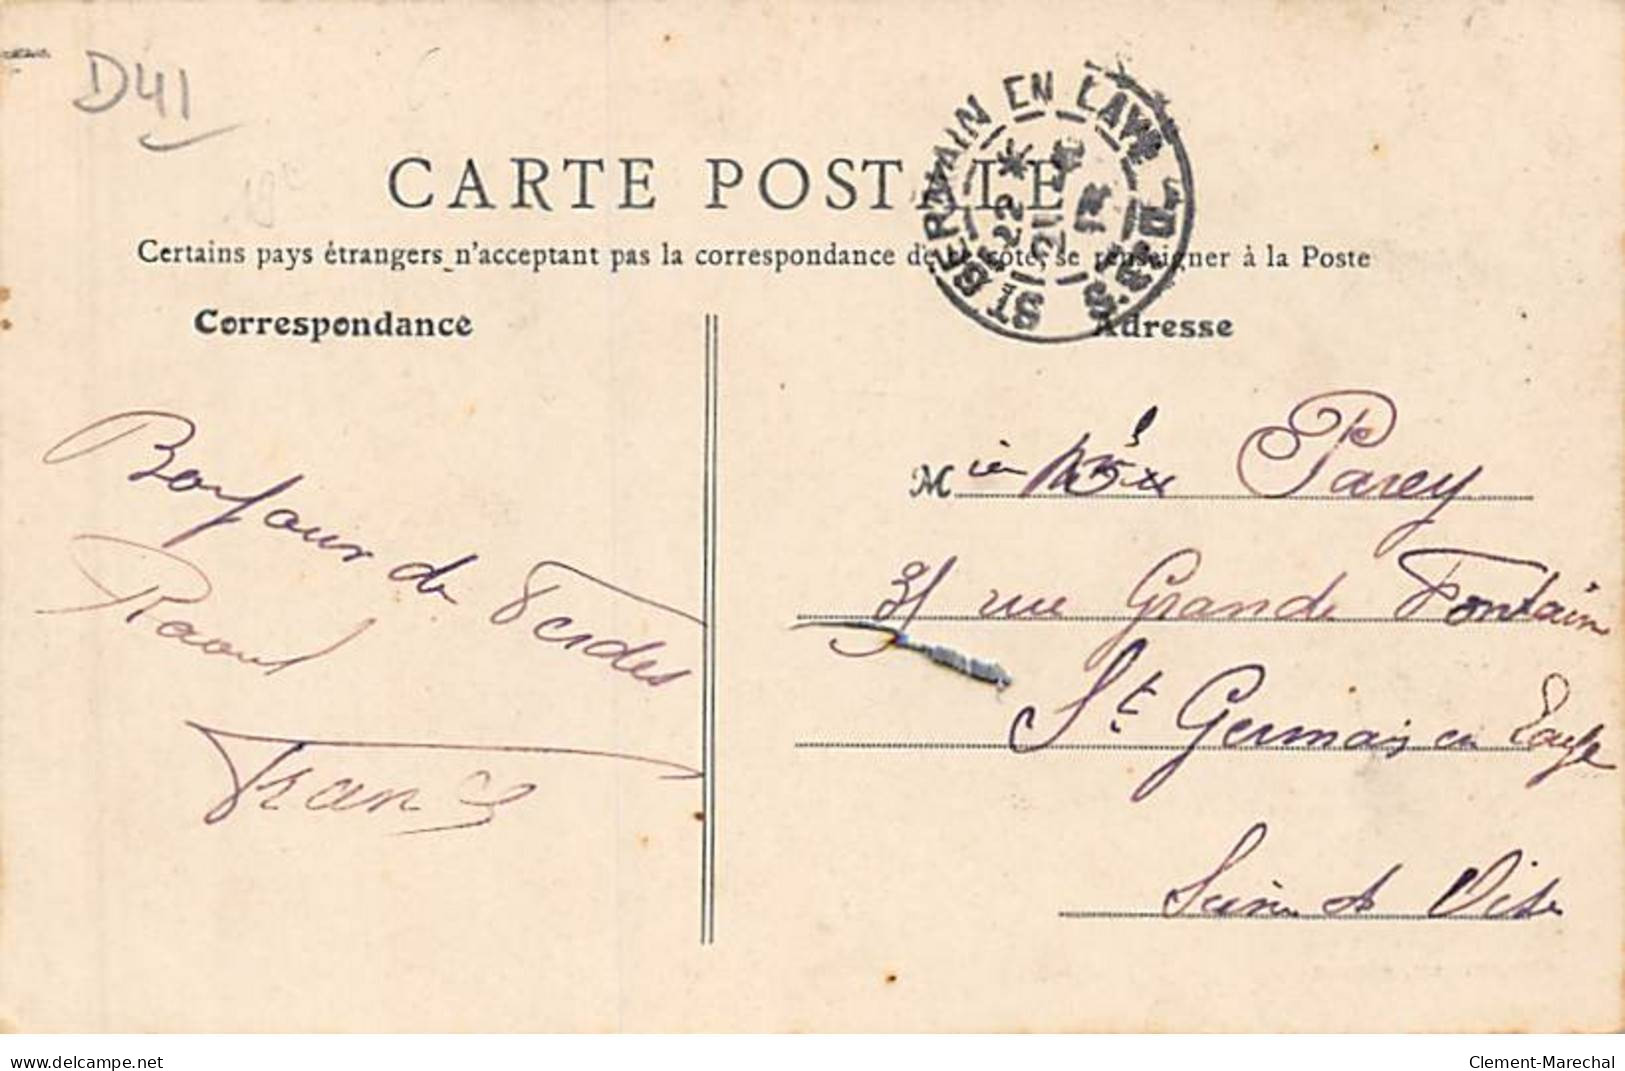 D41
CARTE POSTALE
Certains pays étrangers n'acceptant pas la correspondance de ce côté, se renseigner à la Poste
ST GERMAIN EN LAYE
S.&O.
22 *
21
Correspondance
Adresse
Bonjour de
Raoul
M Parey
31 rue Grande Fontaine
St Germain en Laye
Seine et Oise
delcampe.net
Clement-Marechal